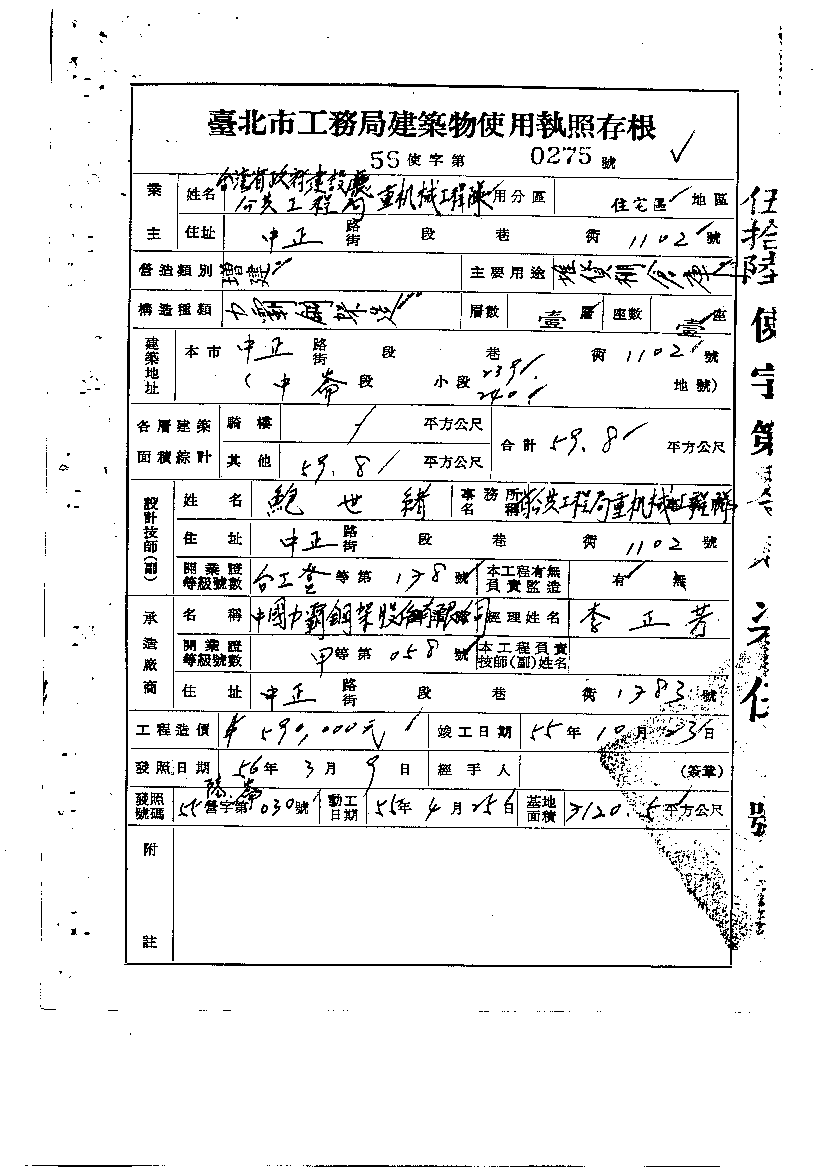 臺北市工務局建築物使用執照存根
56 使字第 0275 號
業主 姓名 台灣省政府建設廳公共工程局重機械工程隊 使用分區 住宅區 地區
住址 中正 路街 段 巷 衖 1102 號
營造類別 增建 主要用途 倉庫
構造種類 力霸鋼架造 層數 壹 層 座數 壹 座
建築地址 本市 中正 路街 段 巷 衖 1102 號
( 中崙 段 小段 239 240 地號)
各層建築面積綜計 騎樓 / 平方公尺 合計 59.81 平方公尺
其他 59.81 平方公尺
設計技師(副) 姓名 鮑世緒 事務所名稱 公共工程局重機械工程隊
住址 中正 路街 段 巷 衖 1102 號
開業證等級號數 台工登 等第 1378 號 本工程有無負責監造 有 無
承造廠商 名稱 中國力霸鋼架股份有限公司 經理姓名 李正芳
開業證等級號數 甲 等第 058 號 本工程負責技師(副)姓名
住址 中正 路街 段 巷 衖 1783 號
工程造價 $590,000元 竣工日期 55年10月23日
發照日期 56年3月9日 經手人 (簽章)
發照號碼 55 營字第 030 號 動工日期 55年4月25日 基地面積 3120.5 平方公尺
附註
伍拾陸使字第 號